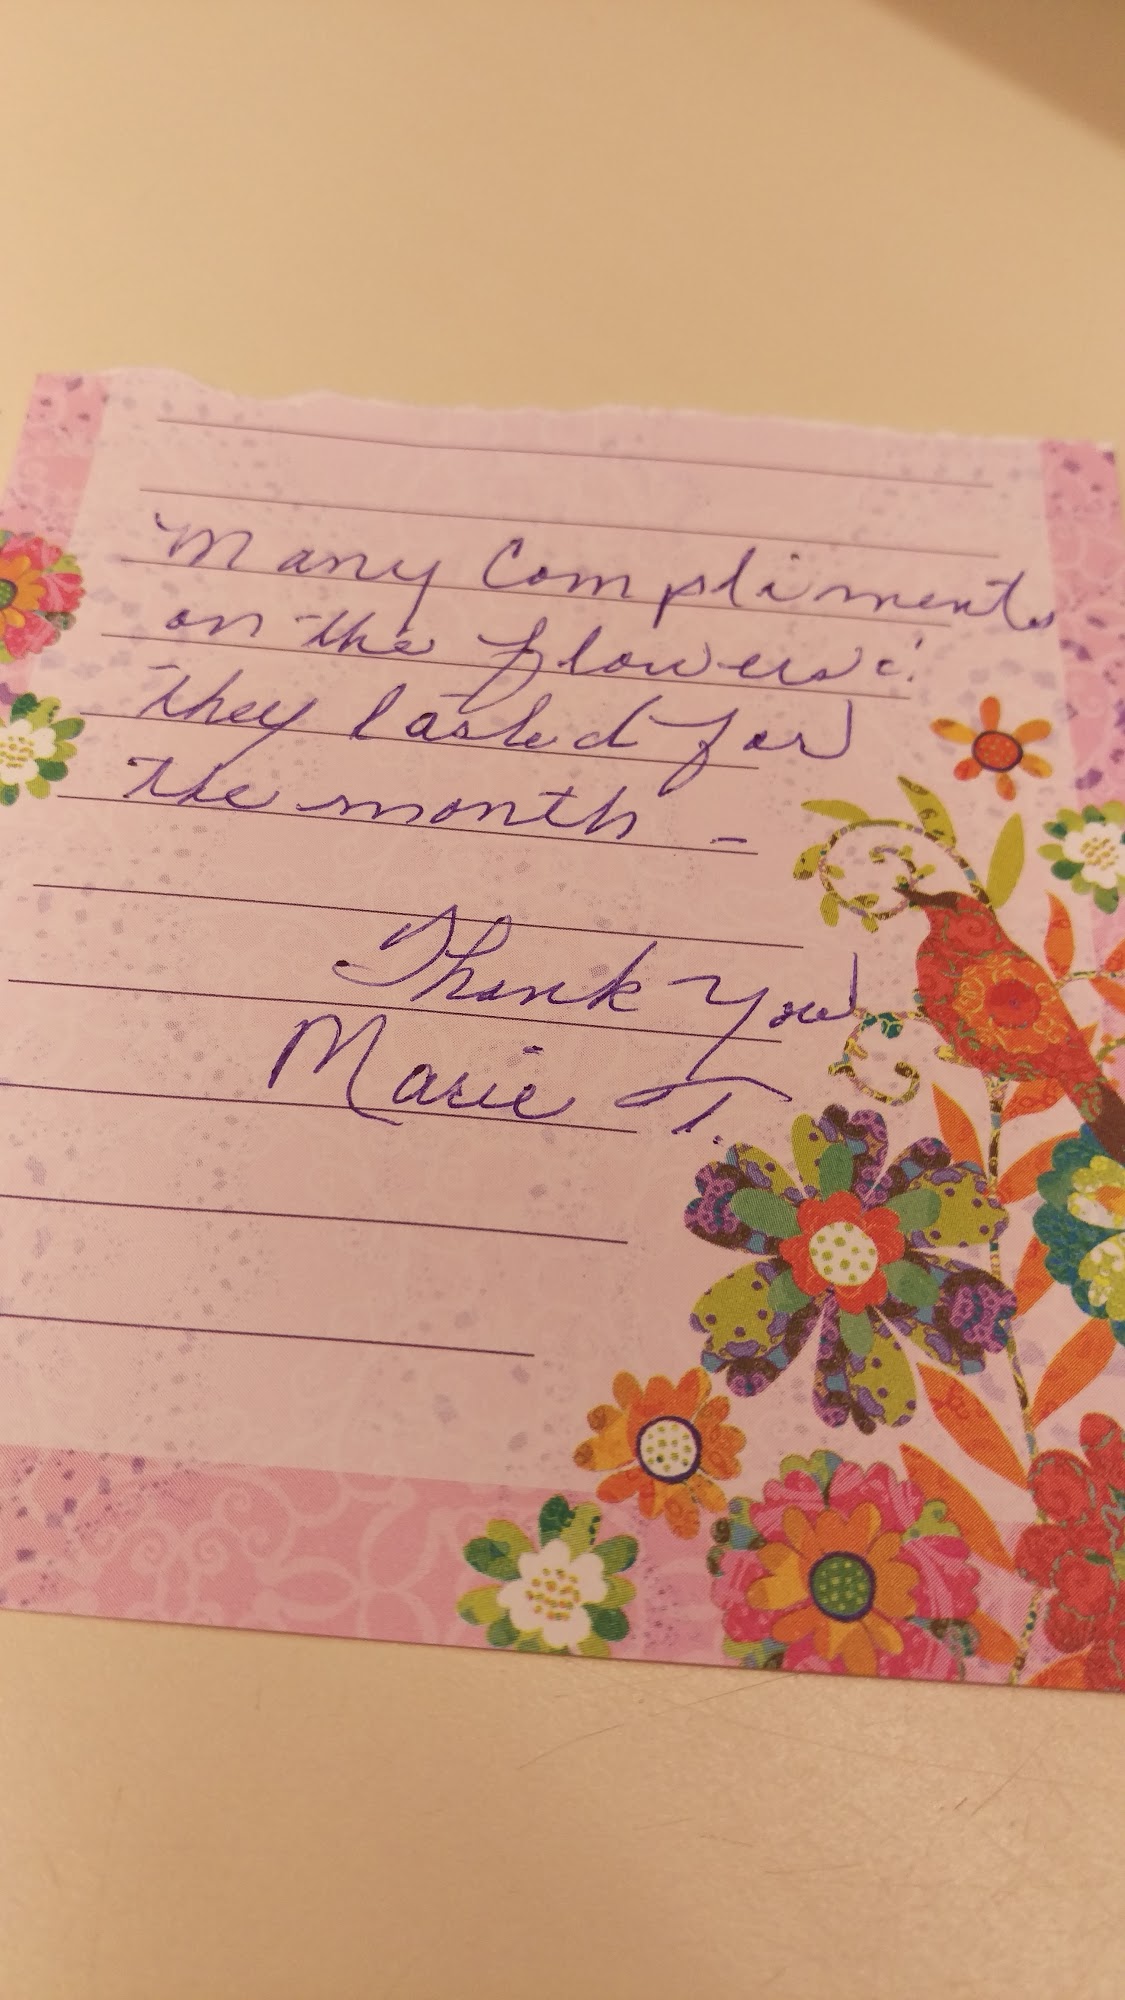 Many Compliments
on the flowers!
they lasted for
the month -
Thank you
Marie T.